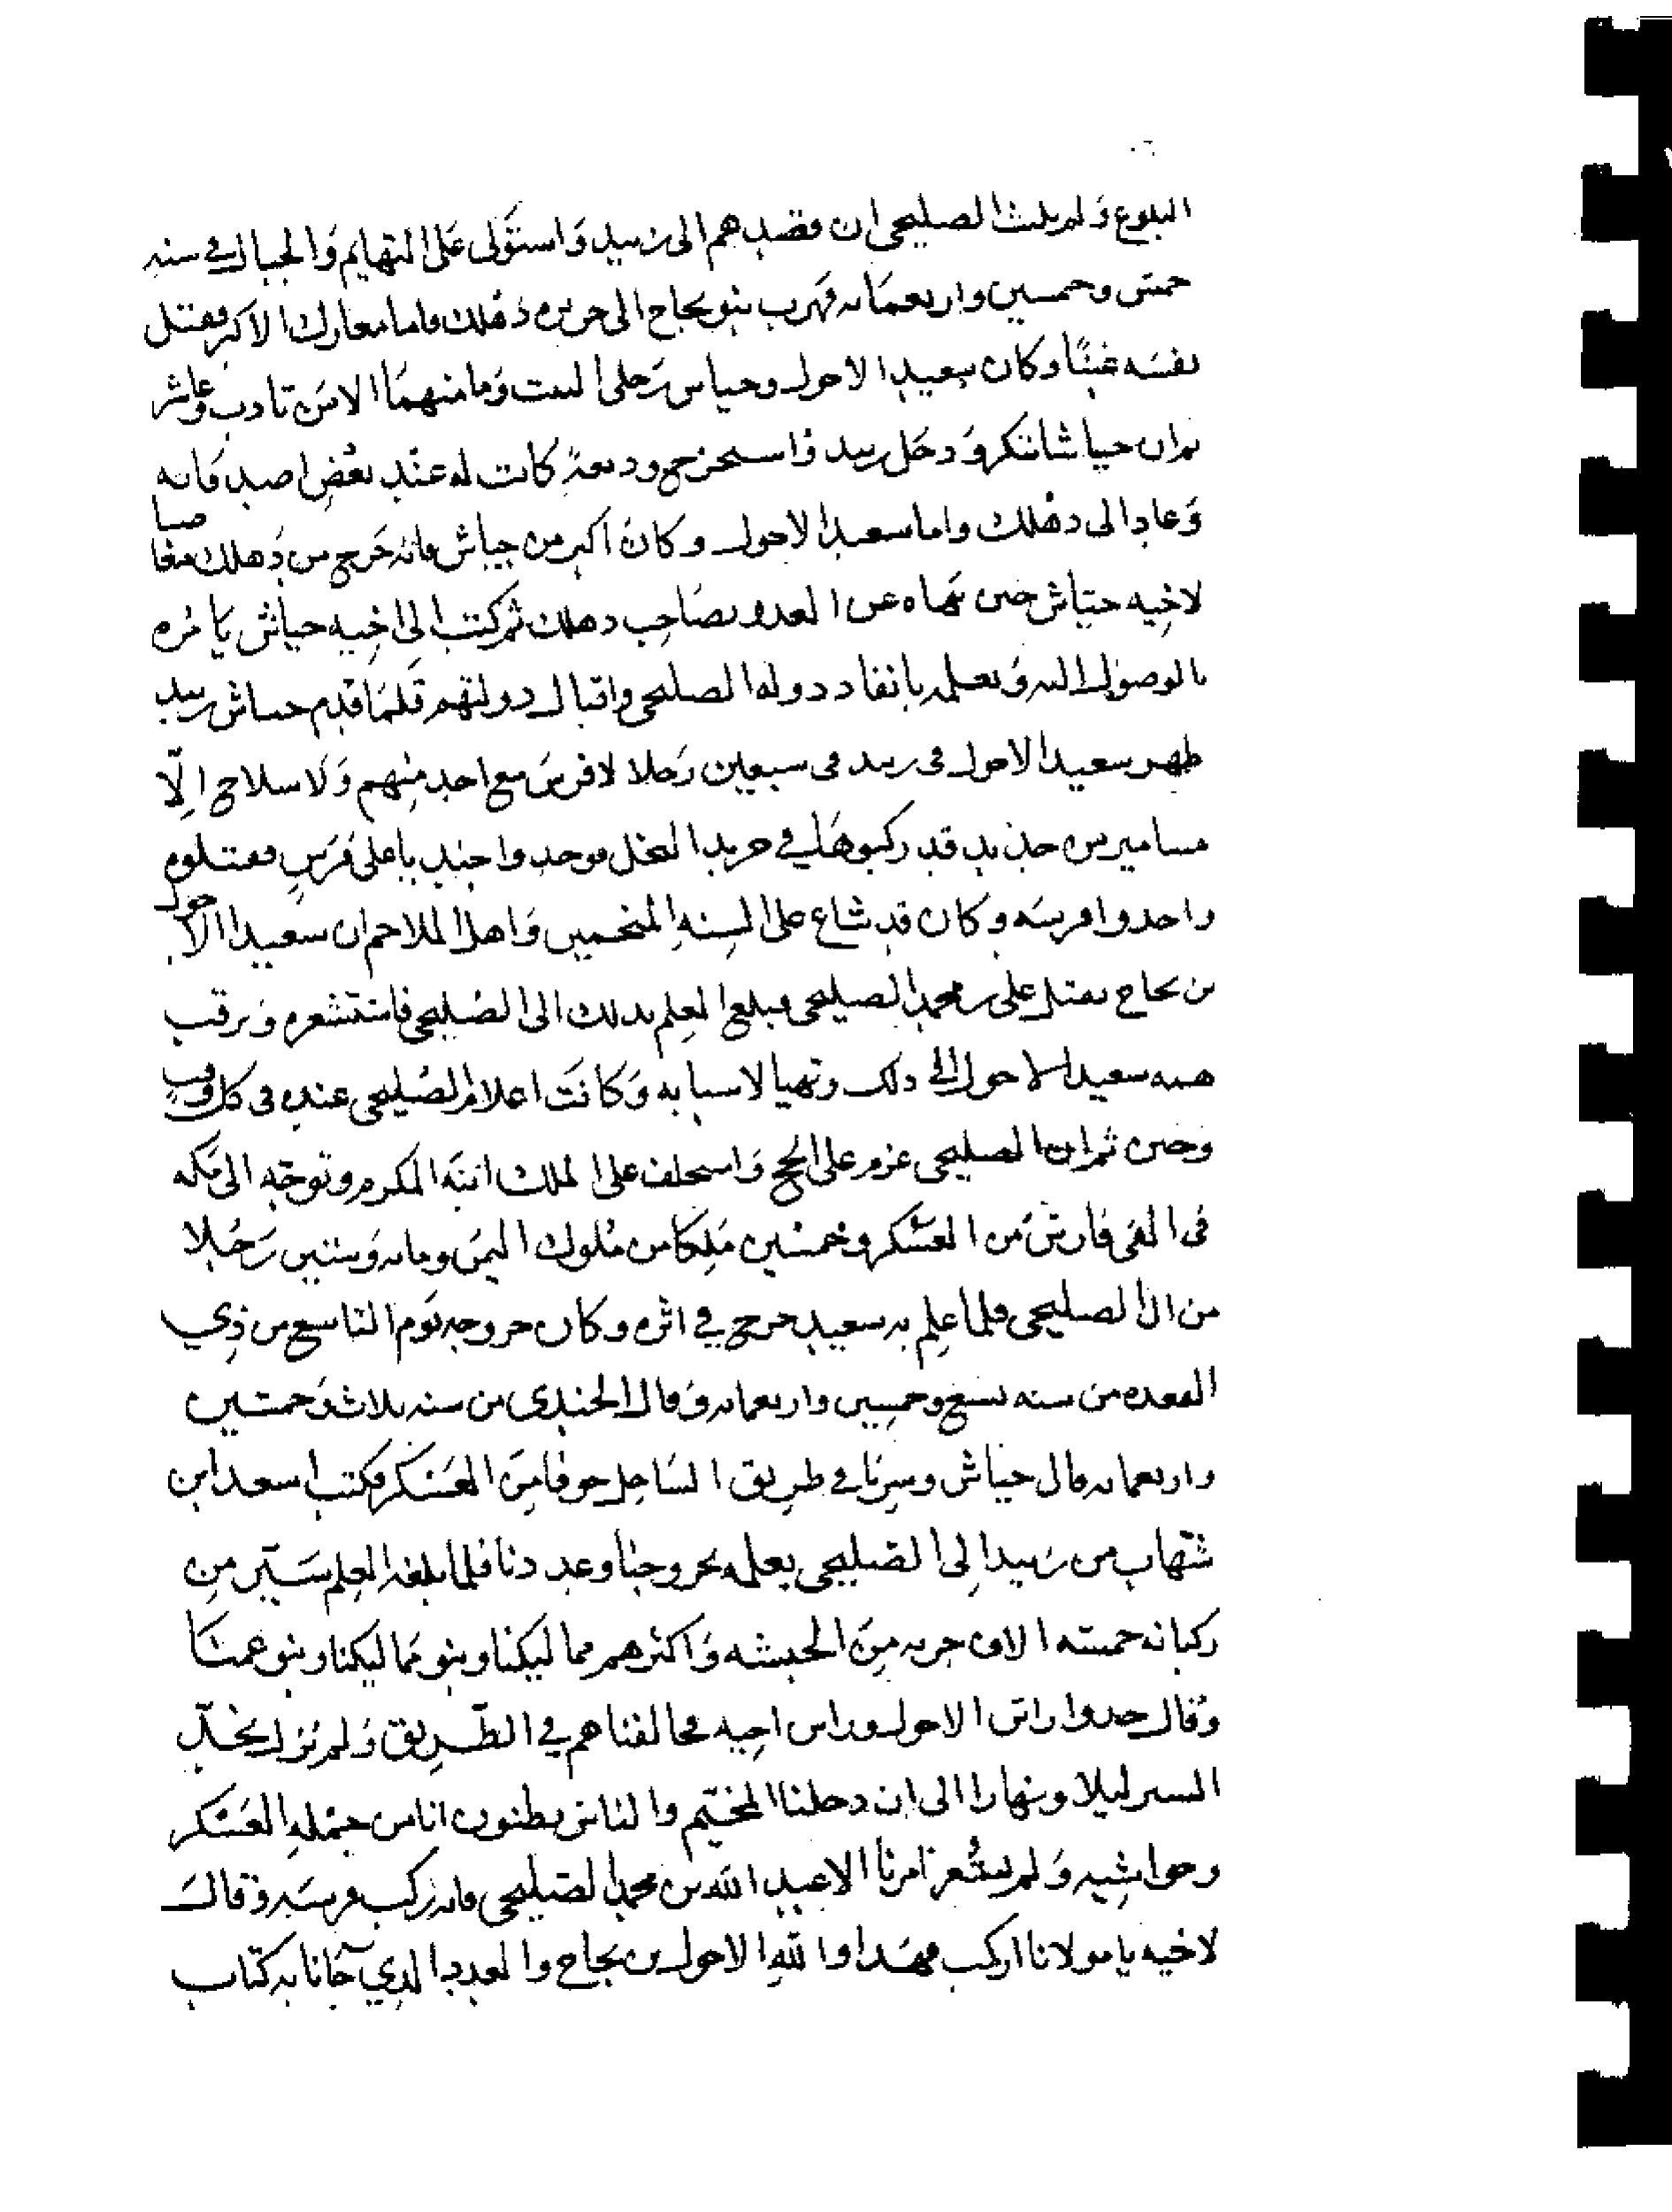 البلوغ ولم يلبث الصليحي ان قصدهم الى زبيد واستولى على التهايم والجبال في سنه
خمس وخمسين واربعمايه فهرب بنو نجاح الى جزيره دهلك واما معارك الاكبر فقتل
نفسه غبنا وكان سعيد الاحول وجياش رجلي البيت وما منهما الا من تادب وعاشر
ثم ان جياشا تنكر ودخل زبيد فاستخرج وديعة كانت له عند بعض اصدقايه
وعاد الى دهلك واما سعيد الاحول وكان اكبر من جياش فانه خرج من دهلك مغاضبا
لاخيه جياش حين نهاه عن الغدر بصاحب دهلك ثم كتب الى اخيه جياش يامره
بالوصول اليه ويعلمه بانفاد دوله الصليحي واقبال دولتهم فلما قدم جياش زبيد
ظهر سعيد الاحول في زبيد في سبعين رجلا لا فرس مع احد منهم ولا سلاح الّا
مسامير من حديد قد ركبوها في جريد النخل فوجدوا جنديا على فرس فقتلوه
واخدوا فرسه وكان قد شاع على السنه المنجمين واهل الملاحم ان سعيد الاحول
بن نجاح يقتل علي بن محمد الصليحي فبلغ العلم بدلك الى الصليحي فاستشعره وترقب
همه سعيد الاحول الى دلك وتهيا لاسبابه وكانت اعلام الصليحي عنده في كل وقت
وحين ثم ان الصليحي عزم على الحج واستخلف على الملك ابنه المكرم وتوجه الى مكه
في الفي فارس من العسكر وخمسين ملكا من ملوك اليمن ومايه وستين رجلا
من ال الصليحي فلما علم به سعيد خرج في اثره وكان خروجه يوم التاسع من ذي
القعده من سنه تسع وخمسين واربعمايه وقال الجندي من سنه ثلاث وخمسين
واربعمايه قال جياش وسرنا في طريق الساحل خوفا من العسكر فكتب اسعد ابن
شهاب من زبيد الى الصليحي يعلمه بخروجنا وعددنا فلما بلغه العلم سير من
ركبانه خمسته الاف حربه من الحبشه واكثرهم مماليكنا وبنو مماليكنا وبنو عمنا
وقال خدوا راس الاحول وراس اخيه فخالفناهم في الطريق ولم نزل نجدّ
السير ليلا ونهارا الى ان دخلنا المخيم والناس يظنون انا من جمله العسكر
وحواشيه ولم يشعر بامرنا الا عبد الله بن محمد الصليحي فانه ركب فرسه وقال
لاخيه يا مولانا اركب فهدا والله الاحول بن نجاح والعدد الذي جانا به كتاب